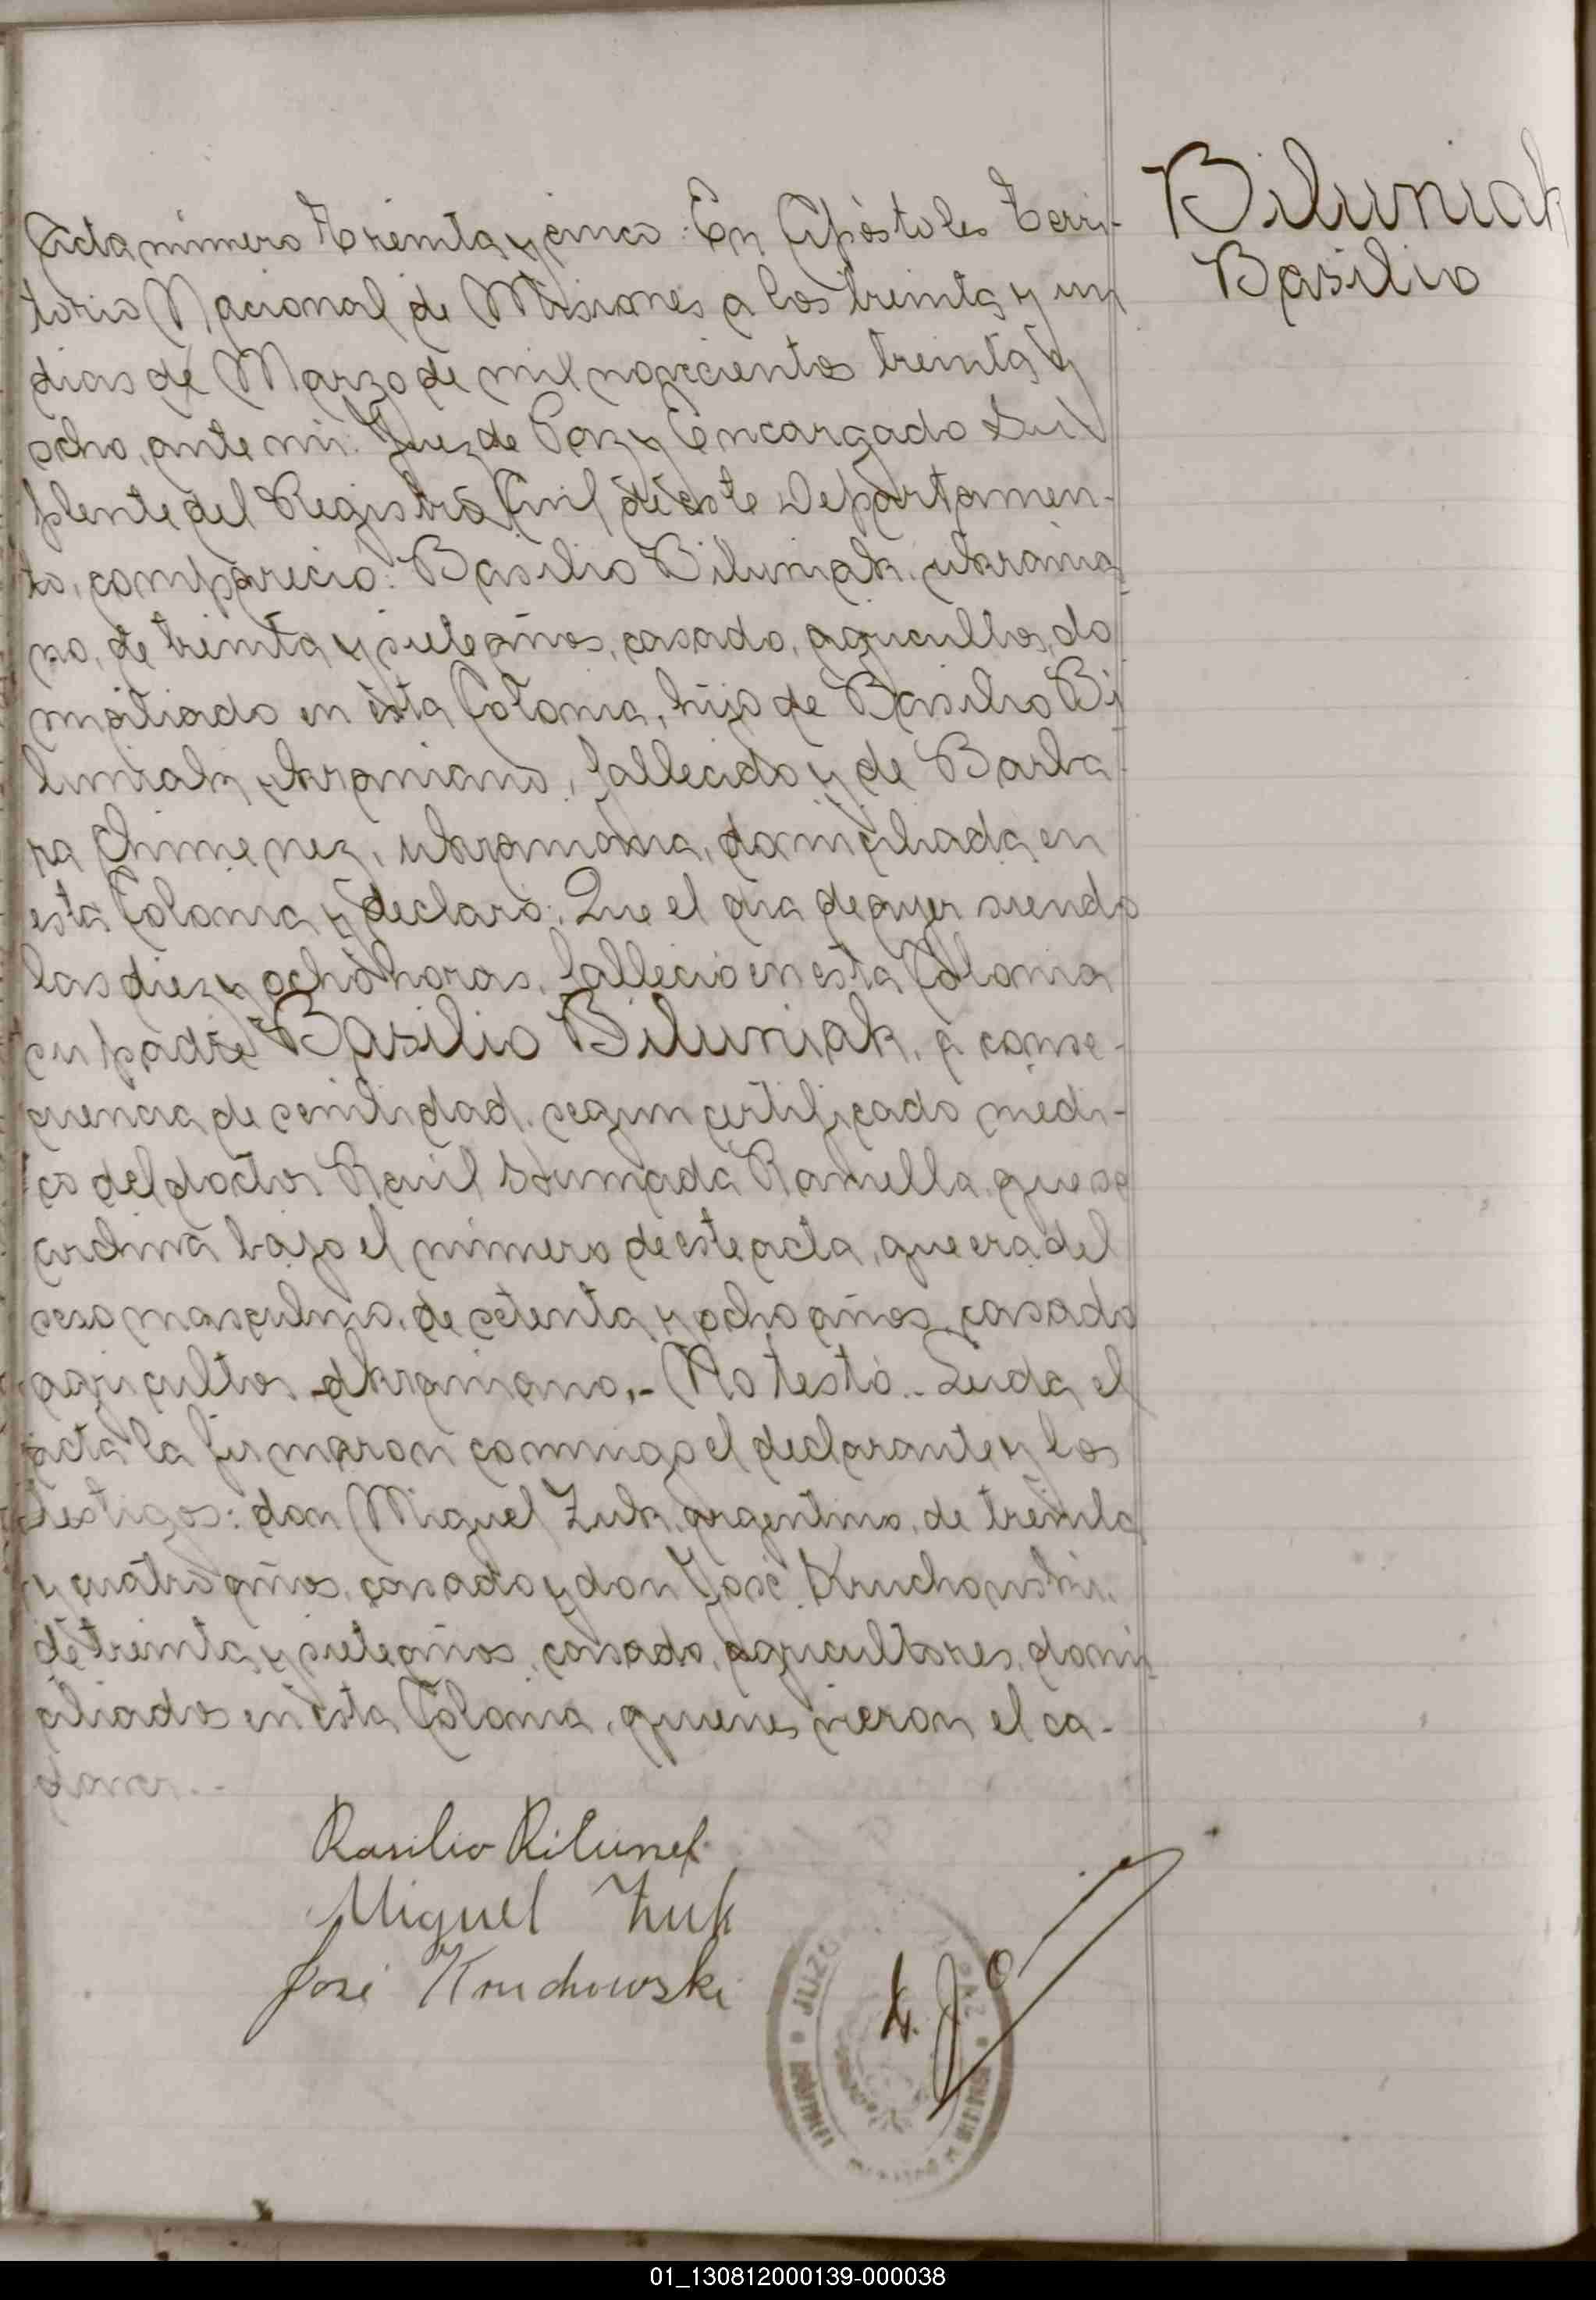 Biluniak
Basilio
Acta número Treinta y cinco: En Apóstoles Terri-
torio Nacional de Misiones a los treinta y un
dias de Marzo de mil novecientos treinta y
ocho, ante mi: Juez de Paz y Encargado Su
plente del Registro Civil de éste Departamen-
to, compareció: Basilio Biluniak, ukrania
no, de treinta y siete años, casado, agricultor, do
miciliado en ésta Colonia, hijo de Basilio Bi
luniak, ukraniano, fallecido y de Barba-
ra Chimenez, ukraniana, domiciliada en
esta Colonia y declaró: Que el dia de ayer siendo
las diez y ocho horas, falleció en esta Colonia
su padre Basilio Biluniak, a conse-
cuencia de senilidad, segun certificado médi-
co del doctor Raúl Ramella, que se
archiva bajo el número de este acta, que era del
sexo masculino, de setenta y ocho años, casado
agricultor ukraniano.- No testó.- Leida el
acta la firmaron conmigo el declarante y los
testigos: don Miguel Zuk, argentino, de treinta
y cuatro años, casado y don José Kruchowski,
de treinta y siete años, casado, agricultores, domi
ciliados en ésta Colonia, quienes vieron el ca-
daver.-
Basilio
Miguel Zuk
José Kruchowski
JUZG PAZ
APÓSTOLES MISIONES
01_130812000139-000038